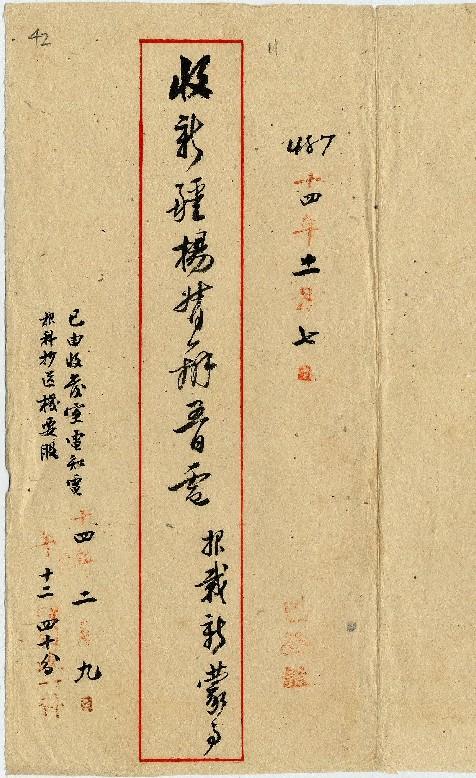 487
十四年十一月七日
收新疆楊督辦晉電
報載新蒙事
已由收發室電知電
報科抄送機要股
十四 二 九日
十二 四十分
42